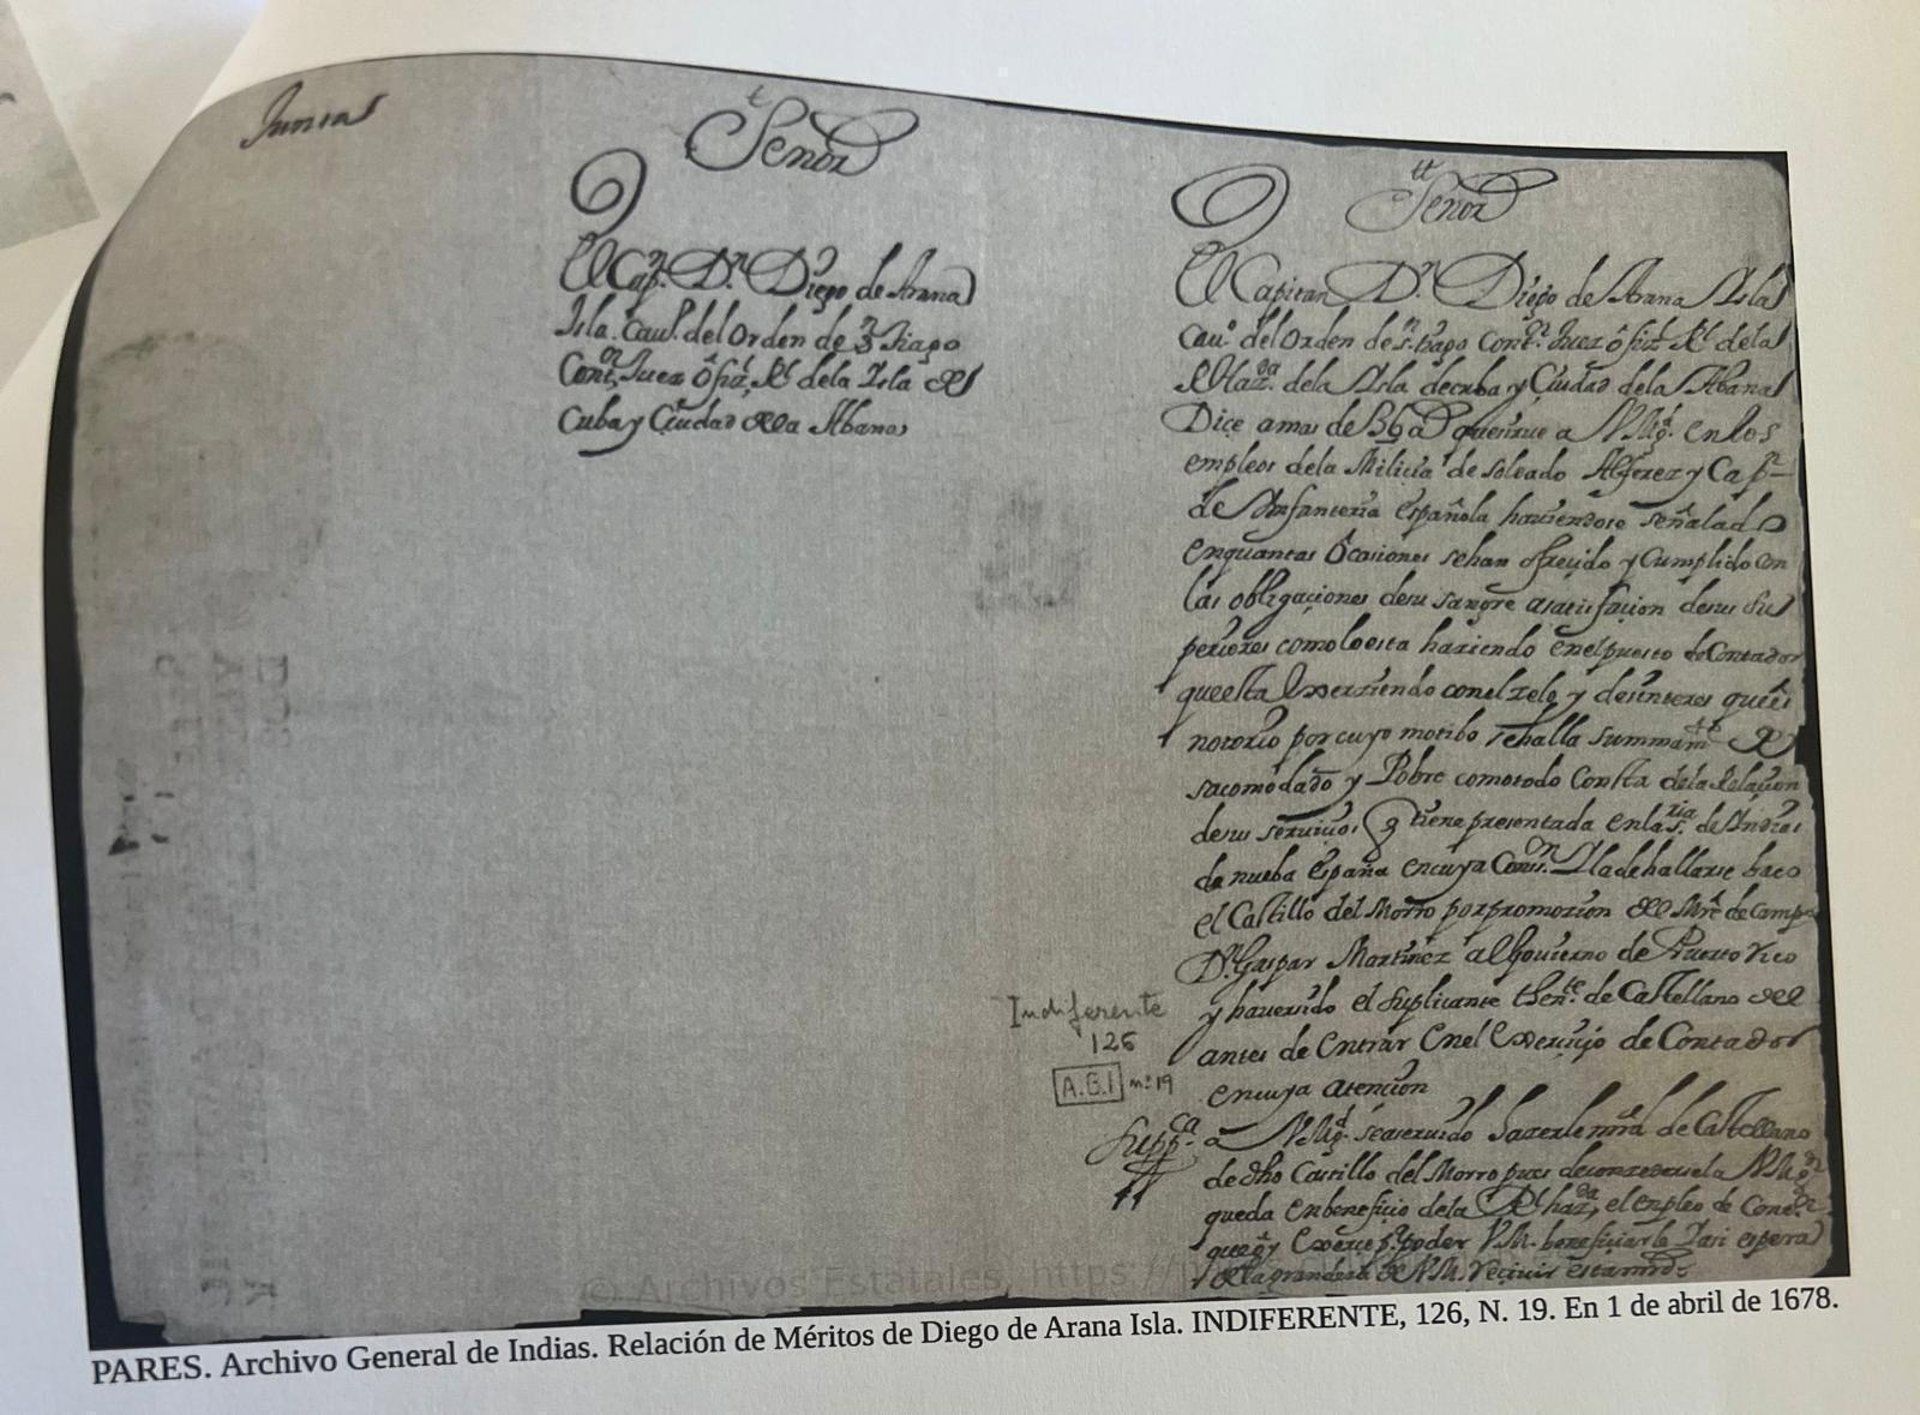 Señor
El Cap.n D.n Diego de Arana
Isla. Caull. del orden de S.n Tiago
Cont.or Juez ôfiz.l R.l dela Isla de
Cuba y Ciudad de la Abana
tt
Señor
El Capitan D.n Diego de Arana Isla
Cau.o del orden de S.n tiago Cont.or Juez ôfiz.l R.l dela
R.l Haz.da dela Isla decuba y Ciudad dela Abana
Dice amas de 36 a.s quesirue a V.Mg.d en los
empleos dela Milicia de soldado Alferez y Cap.n
de Infanteria española hauiendose señalado
enquantas ôcasiones sehan ofreçido y Cumplido con
las obligaçiones desu sangre asatisfaçion desus su
periores comoloesta haziendo enelpuesto de Contador
queesta Exerziendo conelzelo y desinteres quees
notorio por cuyo motibo sehalla summam.te de
sacomodado y Pobre comotodo Consta dela Relaçion
desus seruiçios q tiene presentada enlas.ria de Indias
de nueba españa encuya Cons.on Y lade hallarse baco
el Castillo del Morro porpromozion del M.re de campo
D.n Gaspar Martinez algouierno de Puerto rico
y hauersido el suplicante then.te de Castellano del
antes de entrar enel Exerçiçio de Contador
encuya atençion
Supp.ca a V.Mg.d seaseruido hazerle mrd de Castellano
de dho Castillo del Morro pues deconzedersela V.Mg.d
queda enbenefiçio dela R.l haz.da el enpleo de Cont.or
queoy Exerçe p.a poder V.M. benefiçiarle Yasi espera
dela grandeza de V.M. reçiuir estamrd
Indiferente
126
A.G.I nº 19
© Archivos Estatales, https://
PARES. Archivo General de Indias. Relación de Méritos de Diego de Arana Isla. INDIFERENTE, 126, N. 19. En 1 de abril de 1678.